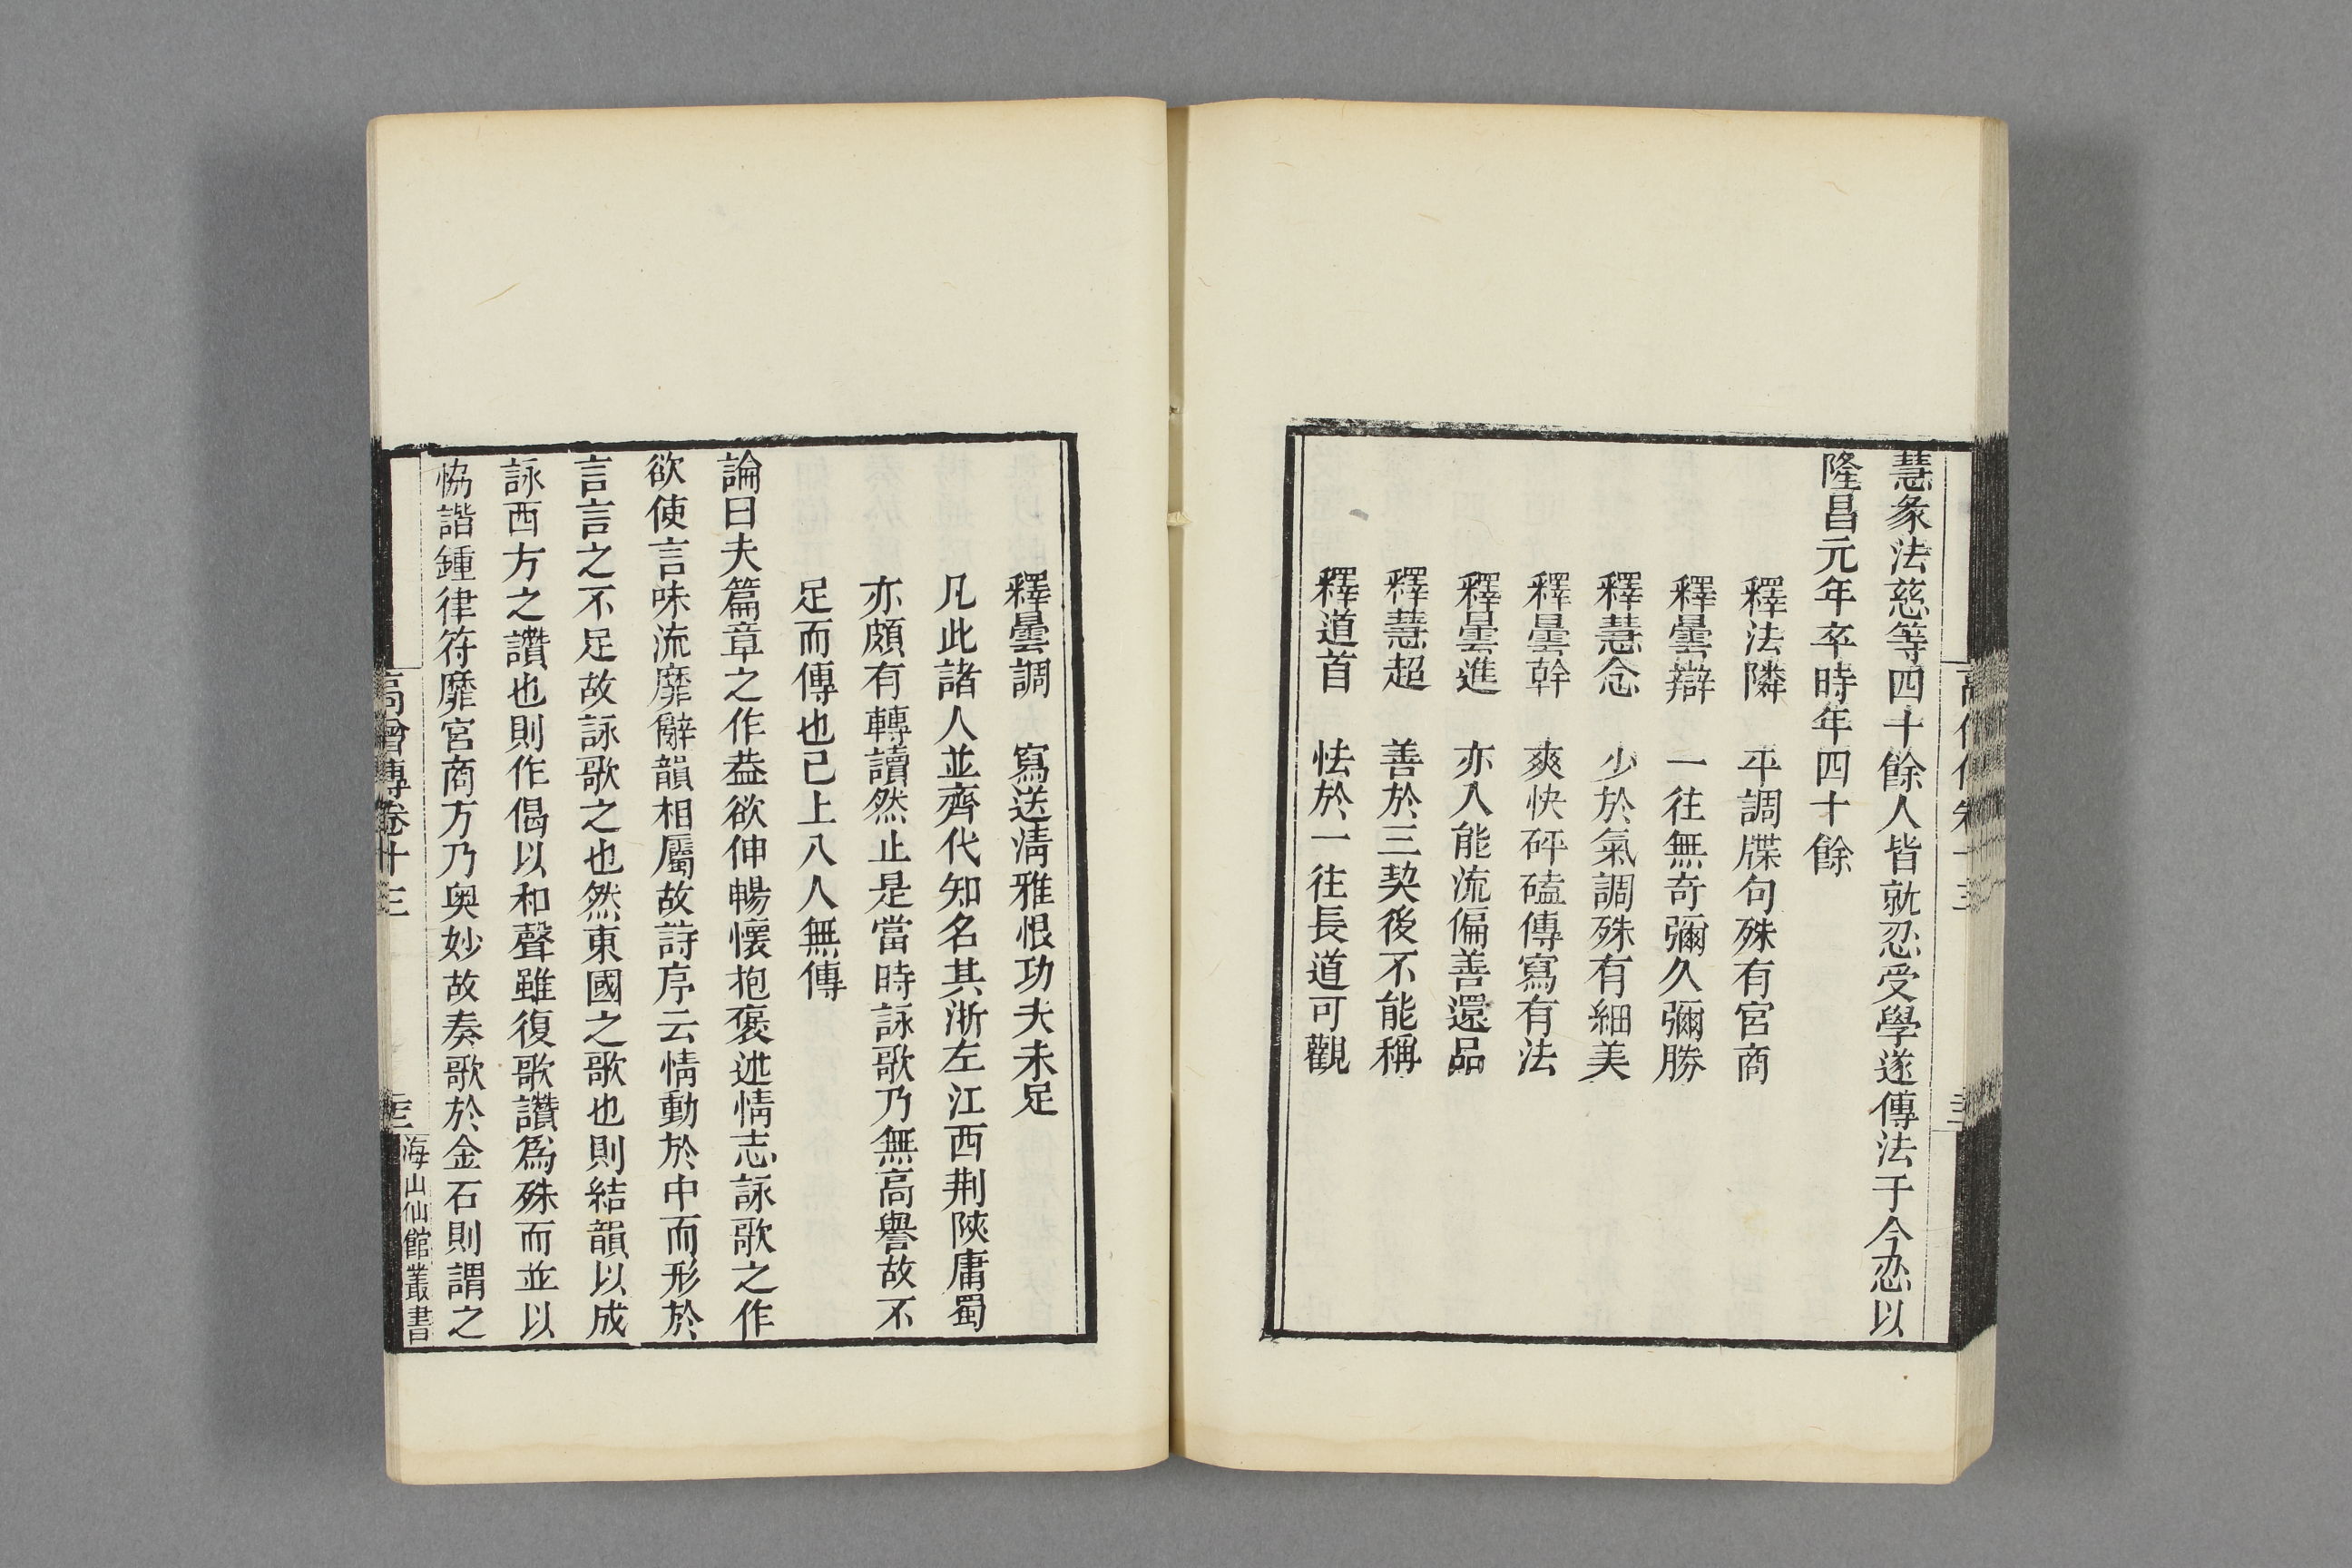 慧彖法慈等四十餘人皆就忍受學遂傳法于今忍以
隆昌元年卒時年四十餘
釋法隣　平調牒句殊有宮商
釋曇辯　一往無奇彌久彌勝
釋慧念　少於氣調殊有細美
釋曇幹　爽快砰磕傳寫有法
釋曇進　亦入能流偏善還品
釋慧超　善於三契後不能稱
釋道首　怯於一往長道可觀
釋曇調　寫送淸雅恨功夫未足
凡此諸人並齊代知名其浙左江西荆陝庸蜀
亦頗有轉讀然止是當時詠歌乃無高譽故不
足而傳也已上八人無傳
論曰夫篇章之作葢欲伸暢懷抱褒述情志詠歌之作
欲使言味流靡辭韻相屬故詩序云情動於中而形於
言言之不足故詠歌之也然東國之歌也則結韻以成
詠西方之讚也則作偈以和聲雖復歌讚爲殊而並以
恊諧鍾律符靡宮商方乃奥妙故奏歌於金石則謂之
高僧傳卷十三
海山仙館叢書